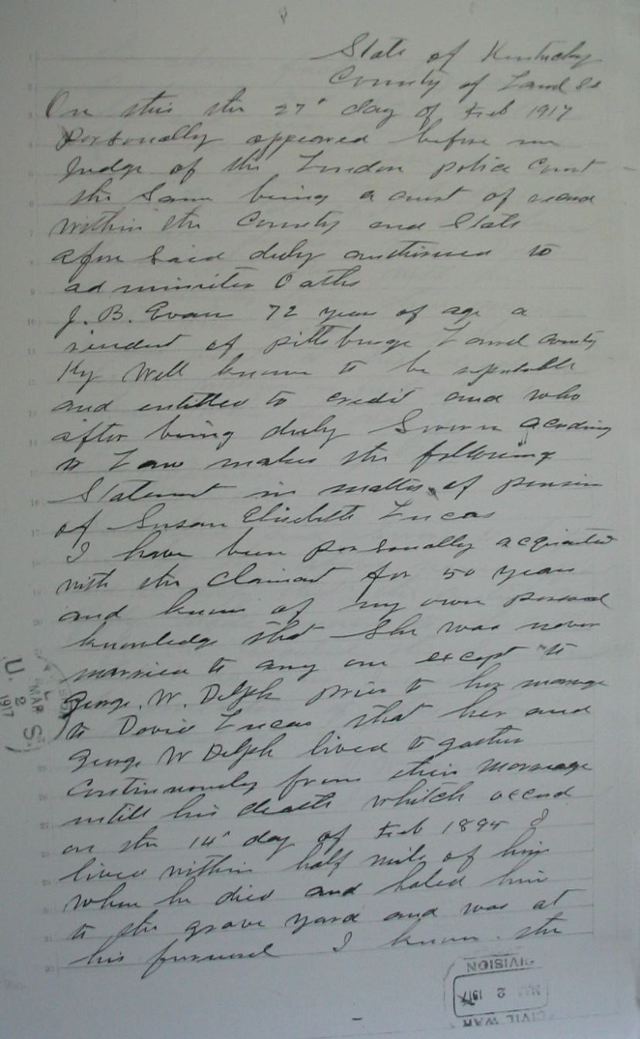 State of Kentucky
County of Laurel SS
On this the 27" day of Feb 1917
Personally appeared before me
Judge of the London police Court
the Same being a court of record
within the County and State
afore Said duly authorised to
administer Oaths
J. B. Evans 72 years of age a
resident of pittsburge Laurel county
Ky Well known to be reputable
and entitled to credit and who
after being duly Sworn acording
to Law makes the following
Statement in matter of pension
of Susan Elisebette Lucas
I have been personally acquainted
with the Claimant for 50 years
and know of my own personal
knowledge that She was never
married to any one except to
George. W. Delph prior to her marriage
to David Lucas that her and
George W Delph lived together
Continuously from their marriage
untill his death whitch occured
on the 14" day of Feb 1894 I
lived within half mile of him
when he died and haled him
to the grave yard and was at
his funeral I know the
U. S.
MAR 2 1917
CIVIL WAR
MAR 2 1917
DIVISION